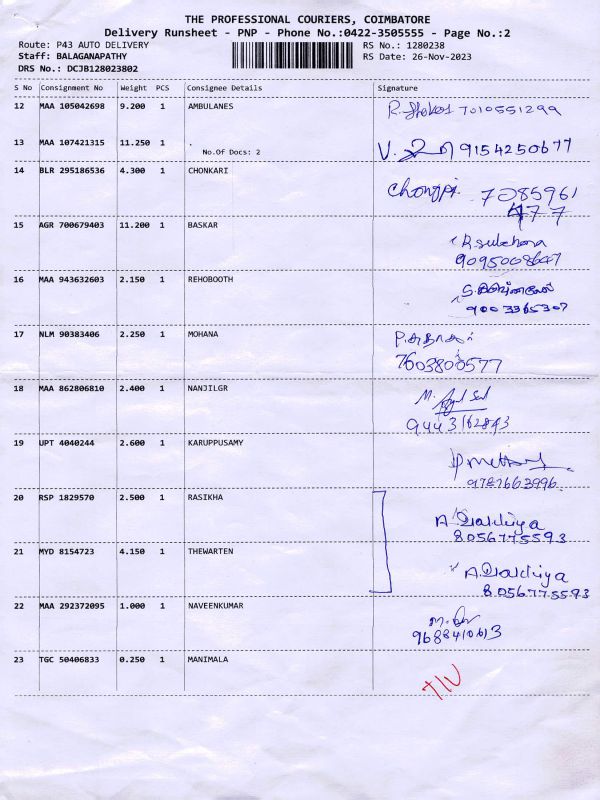 THE PROFESSIONAL COURIERS, COIMBATORE
Delivery Runsheet - PNP - Phone No.:0422-3505555 - Page No.:2
Route: P43 AUTO DELIVERY
RS No.: 1280238
Staff: BALAGANAPATHY
RS Date: 26-Nov-2023
DRS No.: DCJB128023802
S No Consignment No Weight PCS Consignee Details Signature
12 MAA 105042698 9.200 1 AMBULANES 7010551299
13 MAA 107421315 11.250 1 .
No.Of Docs: 2
9154250677
14 BLR 295186536 4.300 1 CHONKARI
7085961
477
15 AGR 700679403 11.200 1 BASKAR
R.sulochana
9095008647
16 MAA 943632603 2.150 1 REHOBOOTH
9003365307
17 NLM 90383406 2.250 1 MOHANA
7603800577
18 MAA 862806810 2.400 1 NANJILGR
9443162843
19 UPT 4040244 2.600 1 KARUPPUSAMY
9787663996
20 RSP 1829570 2.500 1 RASIKHA
8056775593
21 MYD 8154723 4.150 1 THEWARTEN
8056775593
22 MAA 292372095 1.000 1 NAVEENKUMAR
9688410613
23 TGC 50406833 0.250 1 MANIMALA